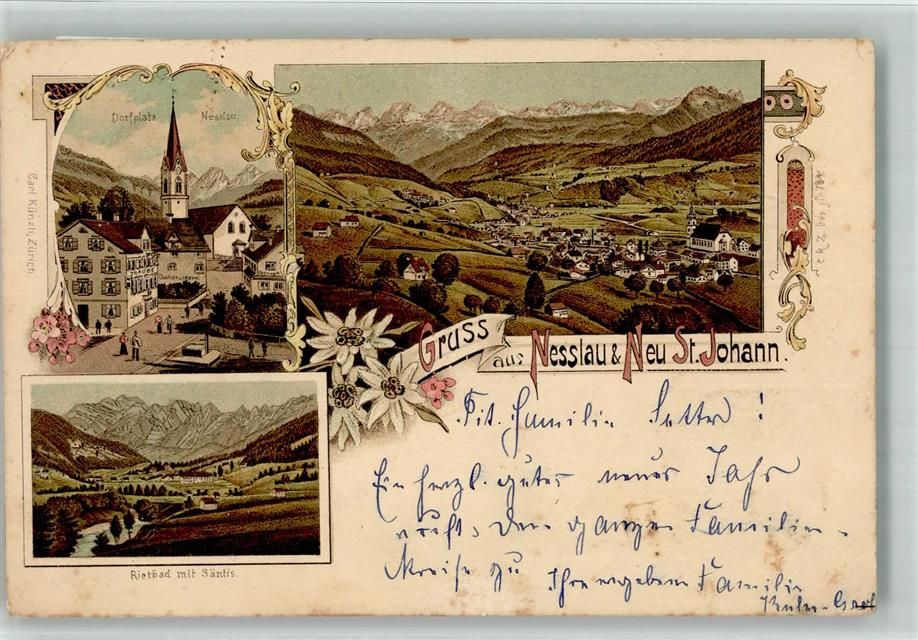 Dorfplatz Nesslau.
Carl Künzli, Zürich.
Gruss aus Nesslau & Neu St. Johann.
Rietbad mit Säntis.
Tit. Familie !
Ein herzl. gutes neues Jahr
ruft dem ganzen Familien-
Kreise zu Ihre ergebene Familie